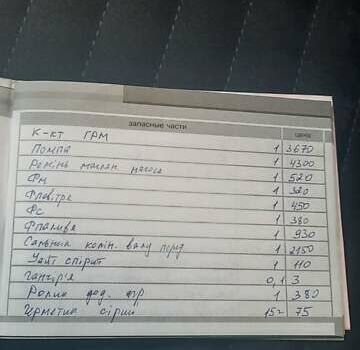 запасные части цена
К-кт ГРМ
Помпа 1 3670
Ремінь маслян. насоса 1 4300
Фм 1 520
Ф повітря 1 320
Фс 1 450
Ф палива 1 380
Сальник колін. валу перед 1 930
1 2150
Уайт спірит 1 110
Ганчір'я 0,1 3
Ролик дод. 1 380
Герметик сірий 15г 75